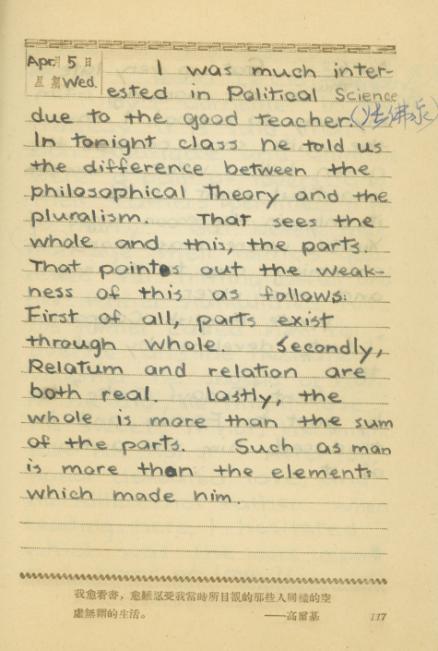 Apr. 月 5 日
星期 Wed.
I was much inter-
ested in Political Science
due to the good teacher.
In tonight class he told us
the difference between the
philosophical Theory and the
pluralism. That sees the
whole and this, the parts.
That points out the weak-
ness of this as follows:
First of all, parts exist
through whole. Secondly,
Relatum and relation are
both real. Lastly, the
whole is more than the sum
of the parts. Such as man
is more than the elements
which made him.
我愈看書，愈難忍受我當時所目覩的那些人同樣的空
虛無聊的生活。 ——高爾基
117